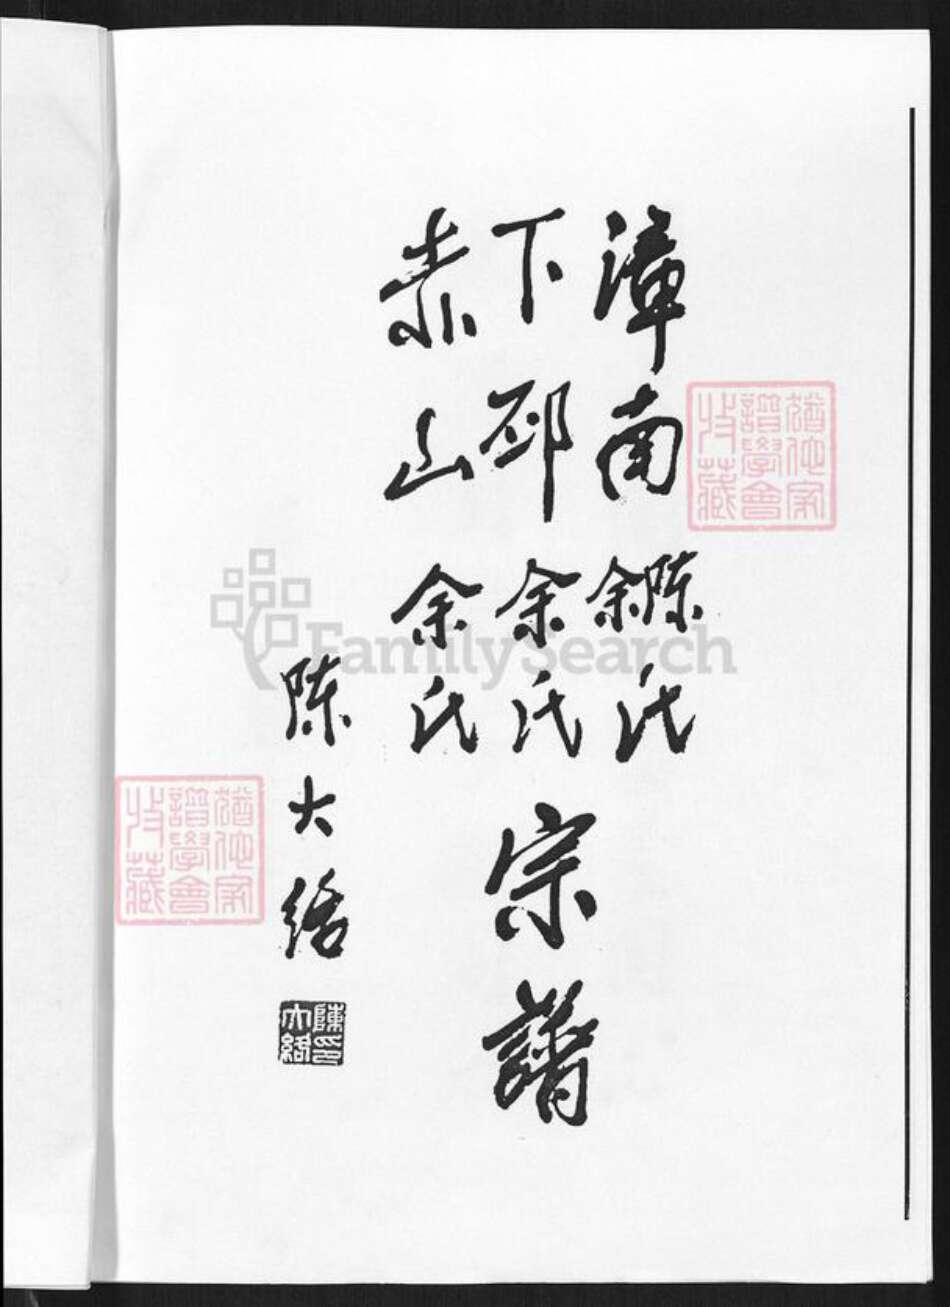 漳南陈余氏
下邳余氏宗譜
赤山余氏
陈大络
陳印大絡
猶他家譜學會收藏
猶他家譜學會收藏
FamilySearch